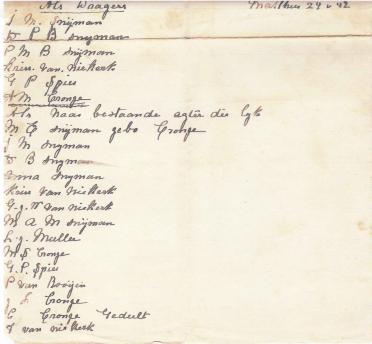 Als Draagers Matthus 24 v 42
J M Snijman
D P B Snyman
P M B Snijman
Kriss. van. Niekerk
G P Spies
A M Cronge
Als naas bestaande agter die lyk
M C Snijman gebo Cronge
J M Snyman
D B Snyman
Anna Snyman
Kriss van Niekerk
G. J. W van Niekerk
M A M Snijman
L. J. Muller
M S Cronge
G. P. Spies
P van Booijen
J S Cronge
C Cronge Gedult
J van Niekerk